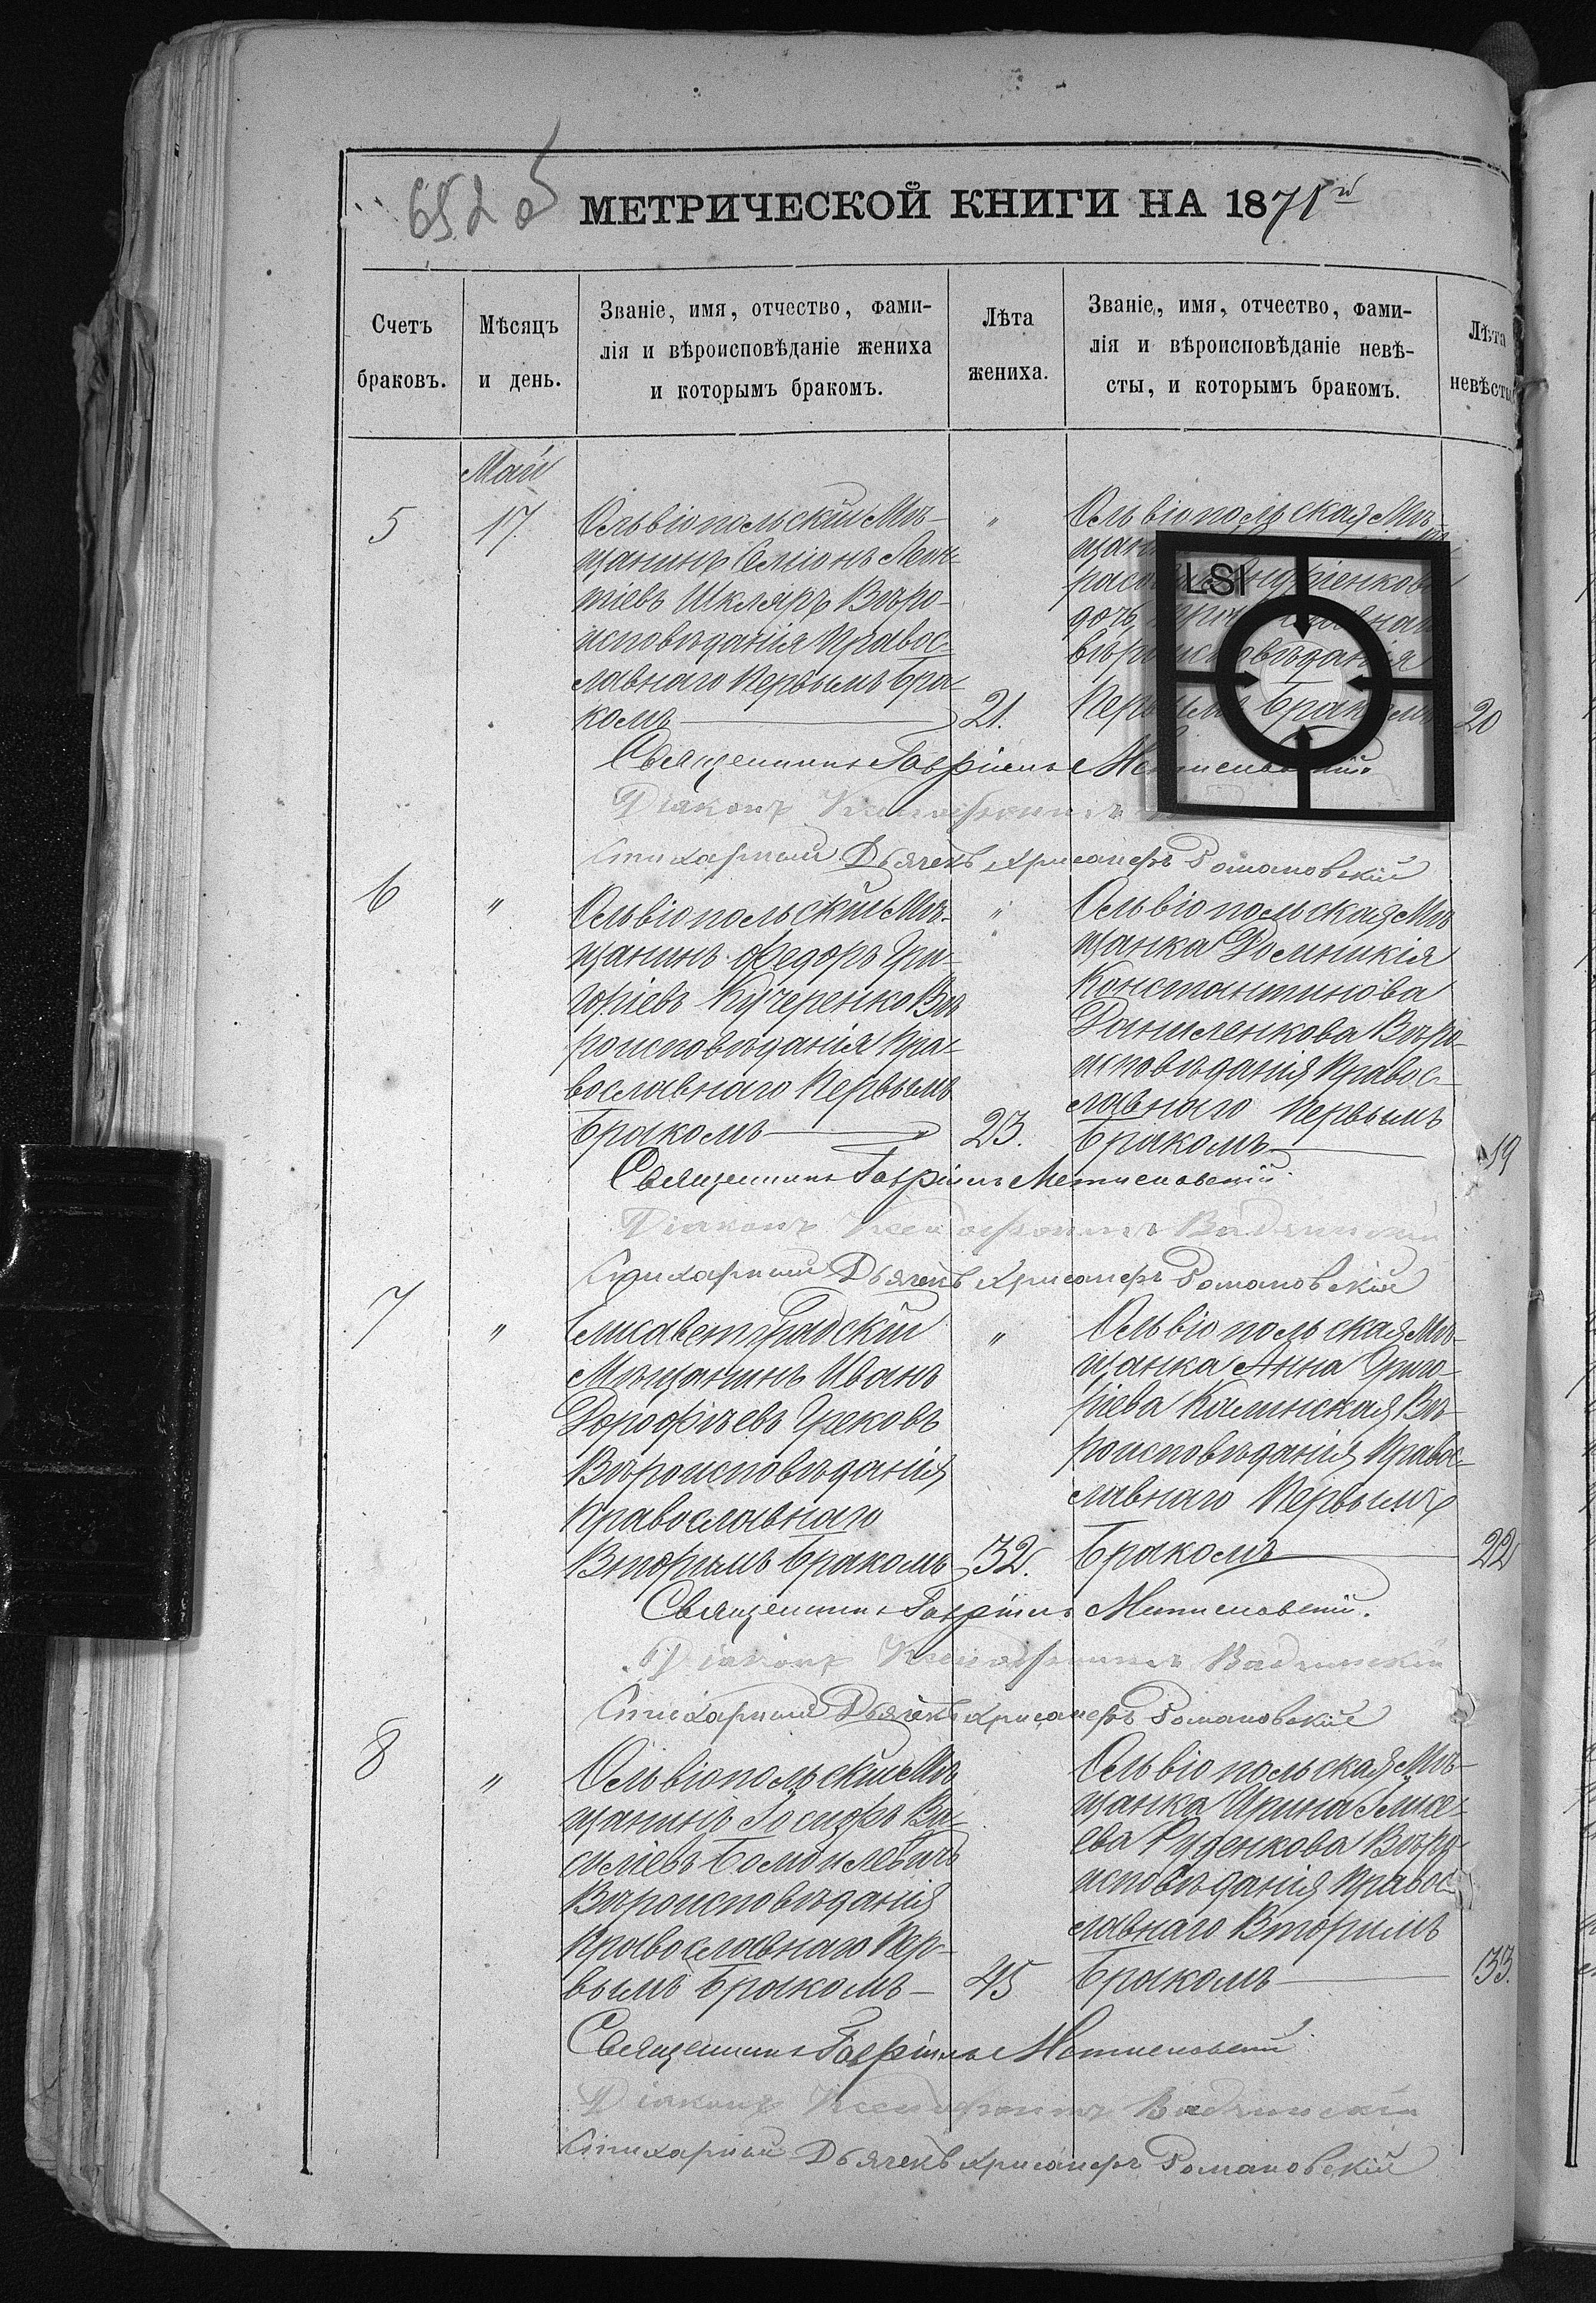 652 об
МЕТРИЧЕСКОЙ КНИГИ НА 1871й
Счетъ браковъ.
Мѣсяцъ и день.
Званіе, имя, отчество, фами-
лія и вѣроисповѣданіе жениха
и которымъ бракомъ.
Лѣта жениха.
Званіе, имя, отчество, фами-
лія и вѣроисповѣданіе невѣ-
сты, и которымъ бракомъ.
Лѣта невѣсты
Май
5
17.
Ольвіопольский Мѣ-
щанинъ Семіонъ Леон-
тіевъ Шкляръ Вѣро-
исповѣданія Правос-
лавнаго Первымъ бра-
комъ
"
21.
Ольвіопольская Мѣ-
вѣроисповѣданія
Первымъ бракомъ
20
Священникъ Гавріилъ
Діаконъ Ксенофонтъ
Стихарный Дьячекъ Хрисанфъ Романовскій
6
"
Ольвіопольский Мѣ-
щанинъ Федоръ Гри-
горіевъ Кучеренко Вѣ
роисповѣданія Пра-
вославнаго Первымъ
бракомъ
"
23.
Ольвіопольская Мѣ
щанка Домникія
Константинова
Даниленкова Вѣро-
исповѣданія Правос-
лавнаго Первымъ
бракомъ
19
Священникъ Гавріилъ
Діаконъ Ксенофонтъ
Стихарный Дьячекъ Хрисанфъ Романовскій
7
"
Елисаветградский
Мѣщанинъ Иванъ
Дорофѣевъ Грековъ
Вѣроисповѣданія
Православнаго
Вторымъ бракомъ
"
32.
Ольвіопольская Мѣ-
щанка Анна Григо-
ріева Каминская Вѣ-
роисповѣданія Правос-
лавнаго Первымъ
бракомъ
22
Священникъ Гавріилъ
Діаконъ Ксенофонтъ
Стихарный Дьячекъ Хрисанфъ Романовскій
8
"
Ольвіопольский Мѣ
щанинъ Іосифъ Ва-
силіевъ
Вѣроисповѣданія
Православнаго Пер-
вымъ бракомъ
45
Ольвіопольская Мѣ-
щанка Ирина Елисе-
ева Руденкова Вѣро-
исповѣданія Правос-
лавнаго Вторимъ
бракомъ
33.
Священникъ Гавріилъ
Діаконъ Ксенофонтъ
Стихарный Дьячекъ Хрисанфъ Романовскій
LSI